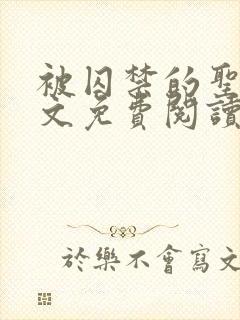 被囚禁的聖
文免費閱讀
於樂不會寫文